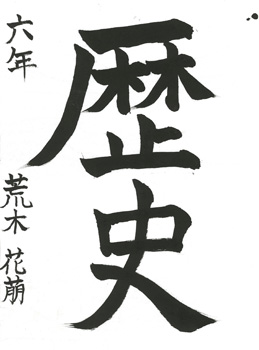 歴史
六年
荒木 花萠